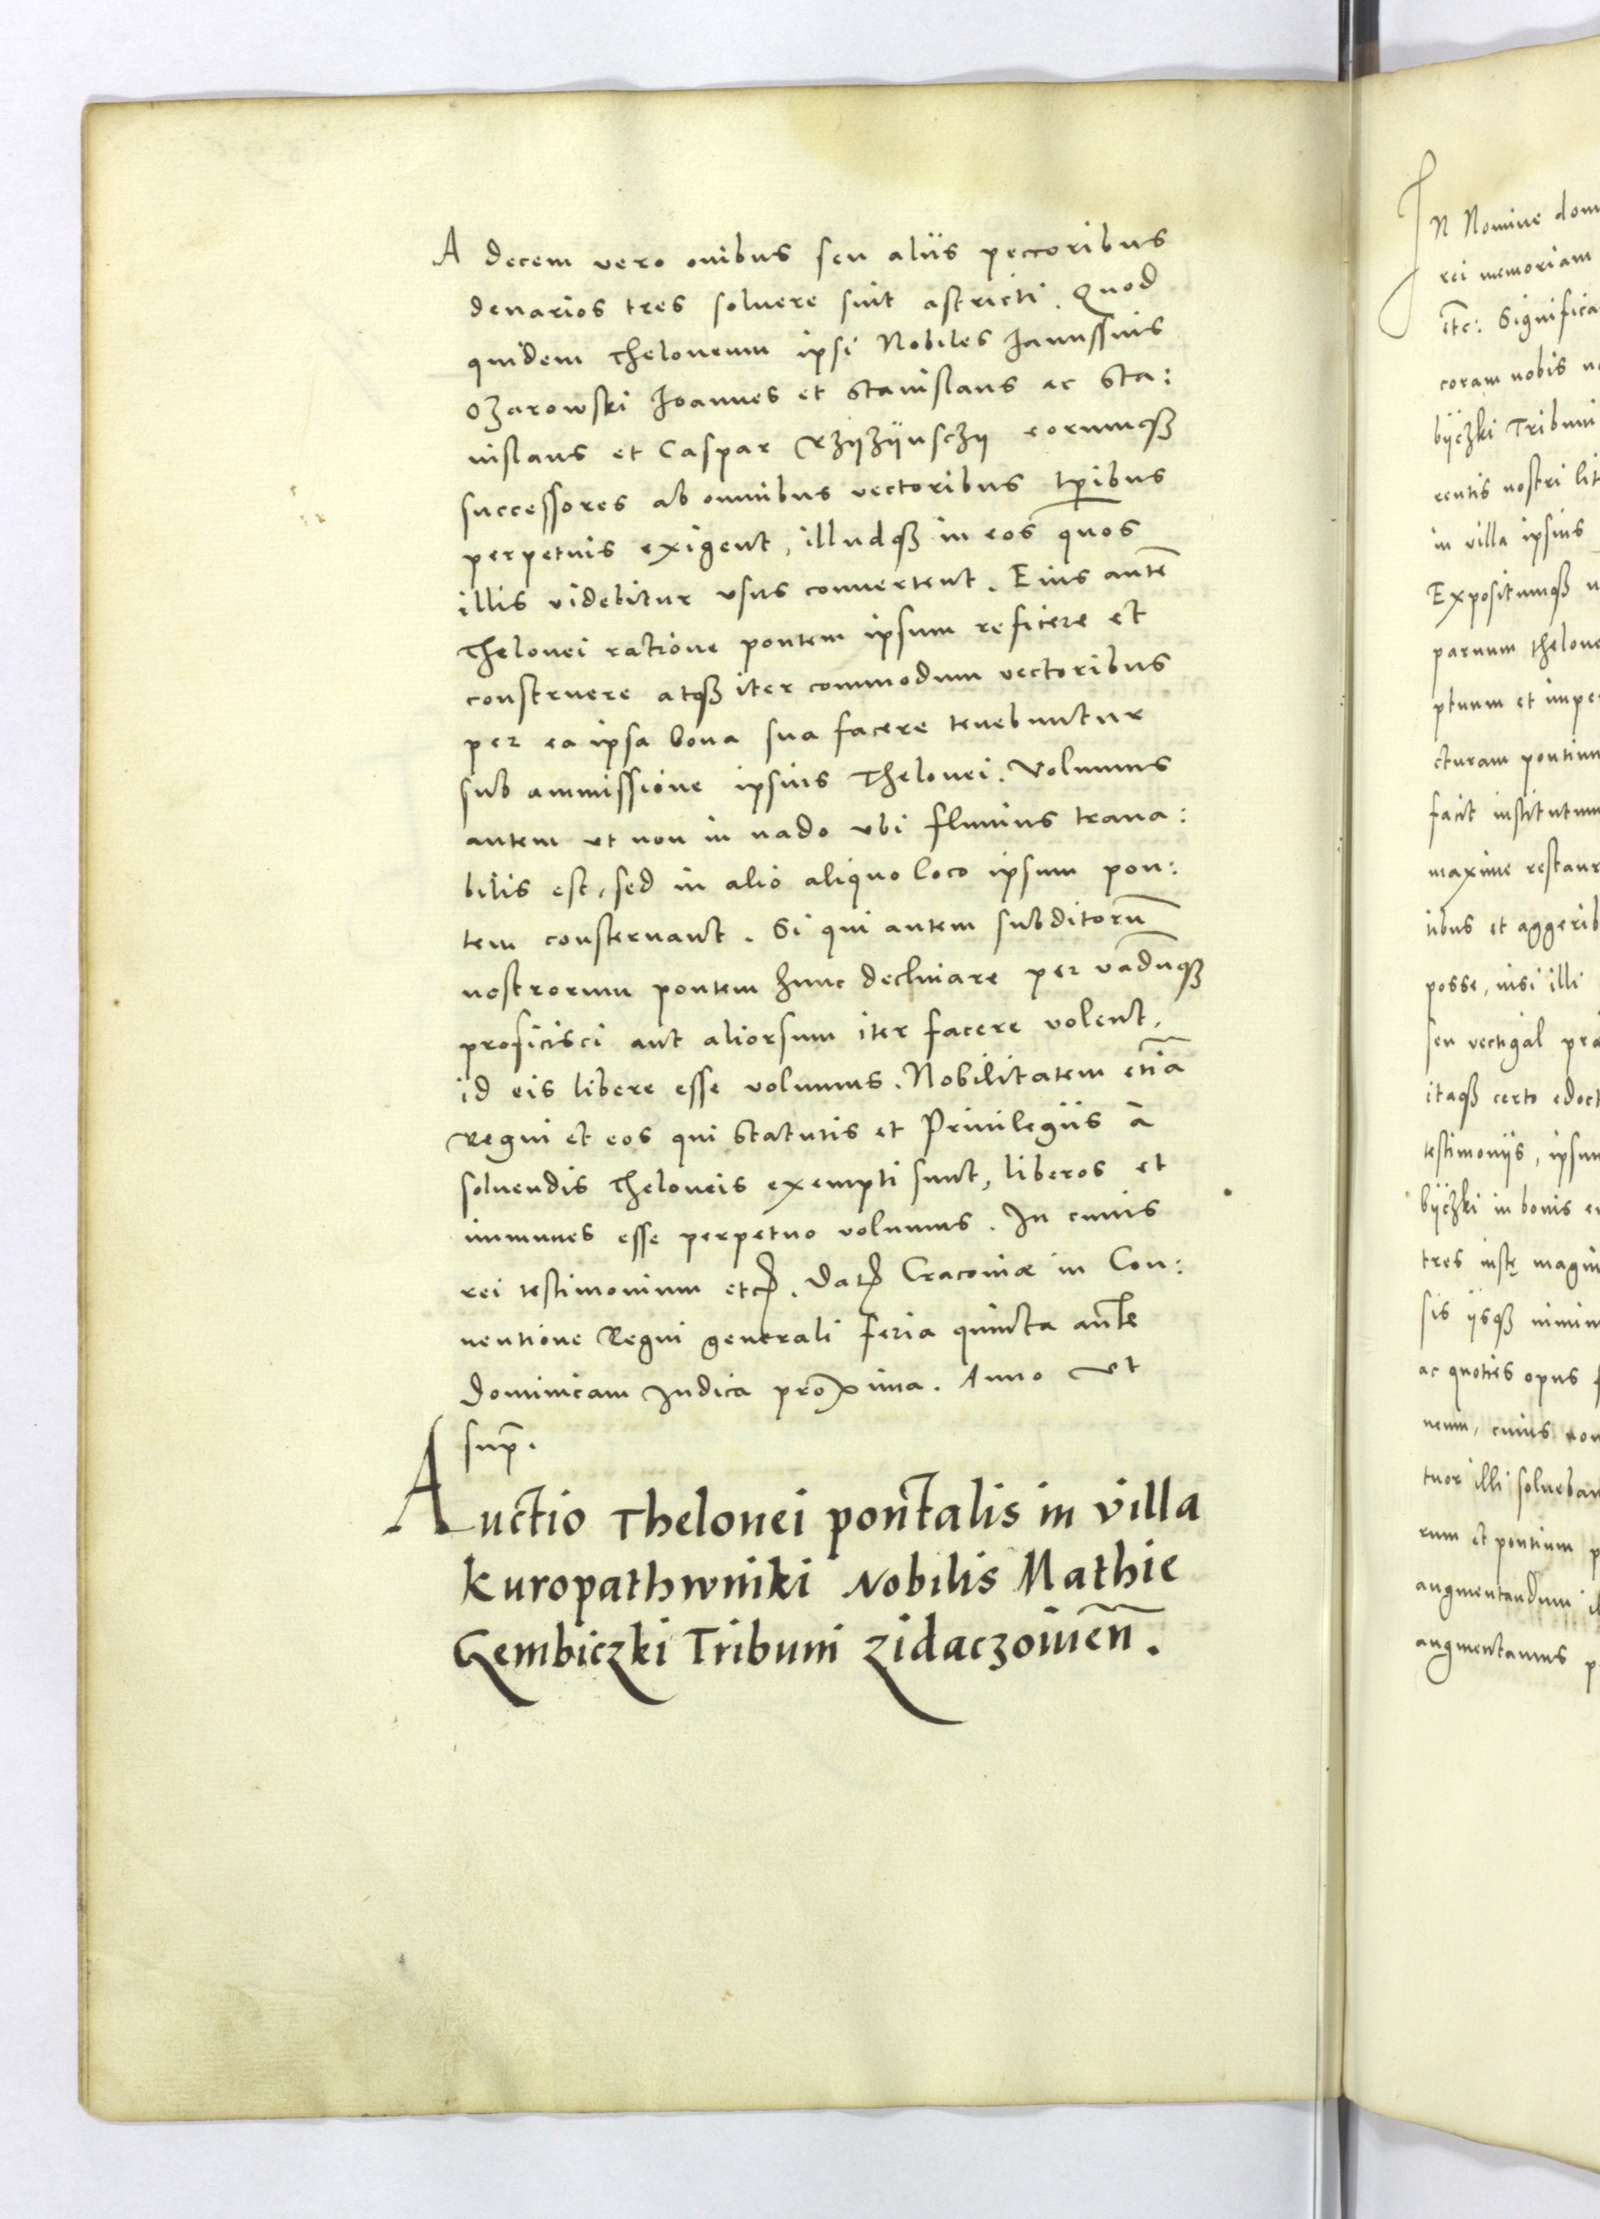 A decem vero ovibus seu aliis peccoribus
denarios tres soluere sint astricti. Quod
quidem Theloneum ipsi Nobiles Janussius
Ozarowski Joannes et Stanislaus ac Sta:
nislaus et Caspar Rzÿzÿnsczÿ eorumqꝫ
successores ab omnibus vectoribus tp̄ibus
perpetuis exigent, illudqꝫ in eos quos
illis videbitur vsus conuertent. Eius autē
Thelonei ratione pontem ipsum reficere et
construere atqꝫ iter commodum vectoribus
per ea ipsa bona sua facere tenebuntur
sub ammissione ipsius Thelonei. Volumus
autem vt non in vado vbi fluuius trana:
bilis est, sed in alio aliquo loco ipsum pon:
tem construant. Si qui autem subditorū
nostrorum pontem hunc declinare per vadūqꝫ
proficisci aut aliorsum iter facere volent,
id eis libere esse volumus. Nobilitatem etiā
Regni et eos qui Statutis et Priuilegiis à
soluendis Theloneis exempti sunt, liberos et
immunes esse perpetuo volumus. In cuius
rei testimonium etc. Dat Cracouiæ in Con:
uentione Regni generali feria quinta ante
Dominicam Judica proxima. Anno vt
sup̄.
Auctio Thelonei pontalis in villa
Kuropathwniki Nobilis Mathie
Gembiczki Tribuni Zidaczouien̄.
In Nomine dom
rei memoriam
etc: Significa
coram nobis
bÿczki Tribuni
rentis nostri lit
in villa ipsius
Expositumqꝫ
paruum thelone
ptuum et impe
cturam pontium
facit institutum
maxime restaur
tibus et aggerib
posse, nisi illi
seu vectigal pra
itaqꝫ certo edoct
testimoniis, ipsum
bÿczki in bonis
tres iuste magni
sis iisqꝫ nimiu
ac quoties opus
neum, cuius
tuor illi soluebau
rum et pontium p
augmentandum
augmentamus p